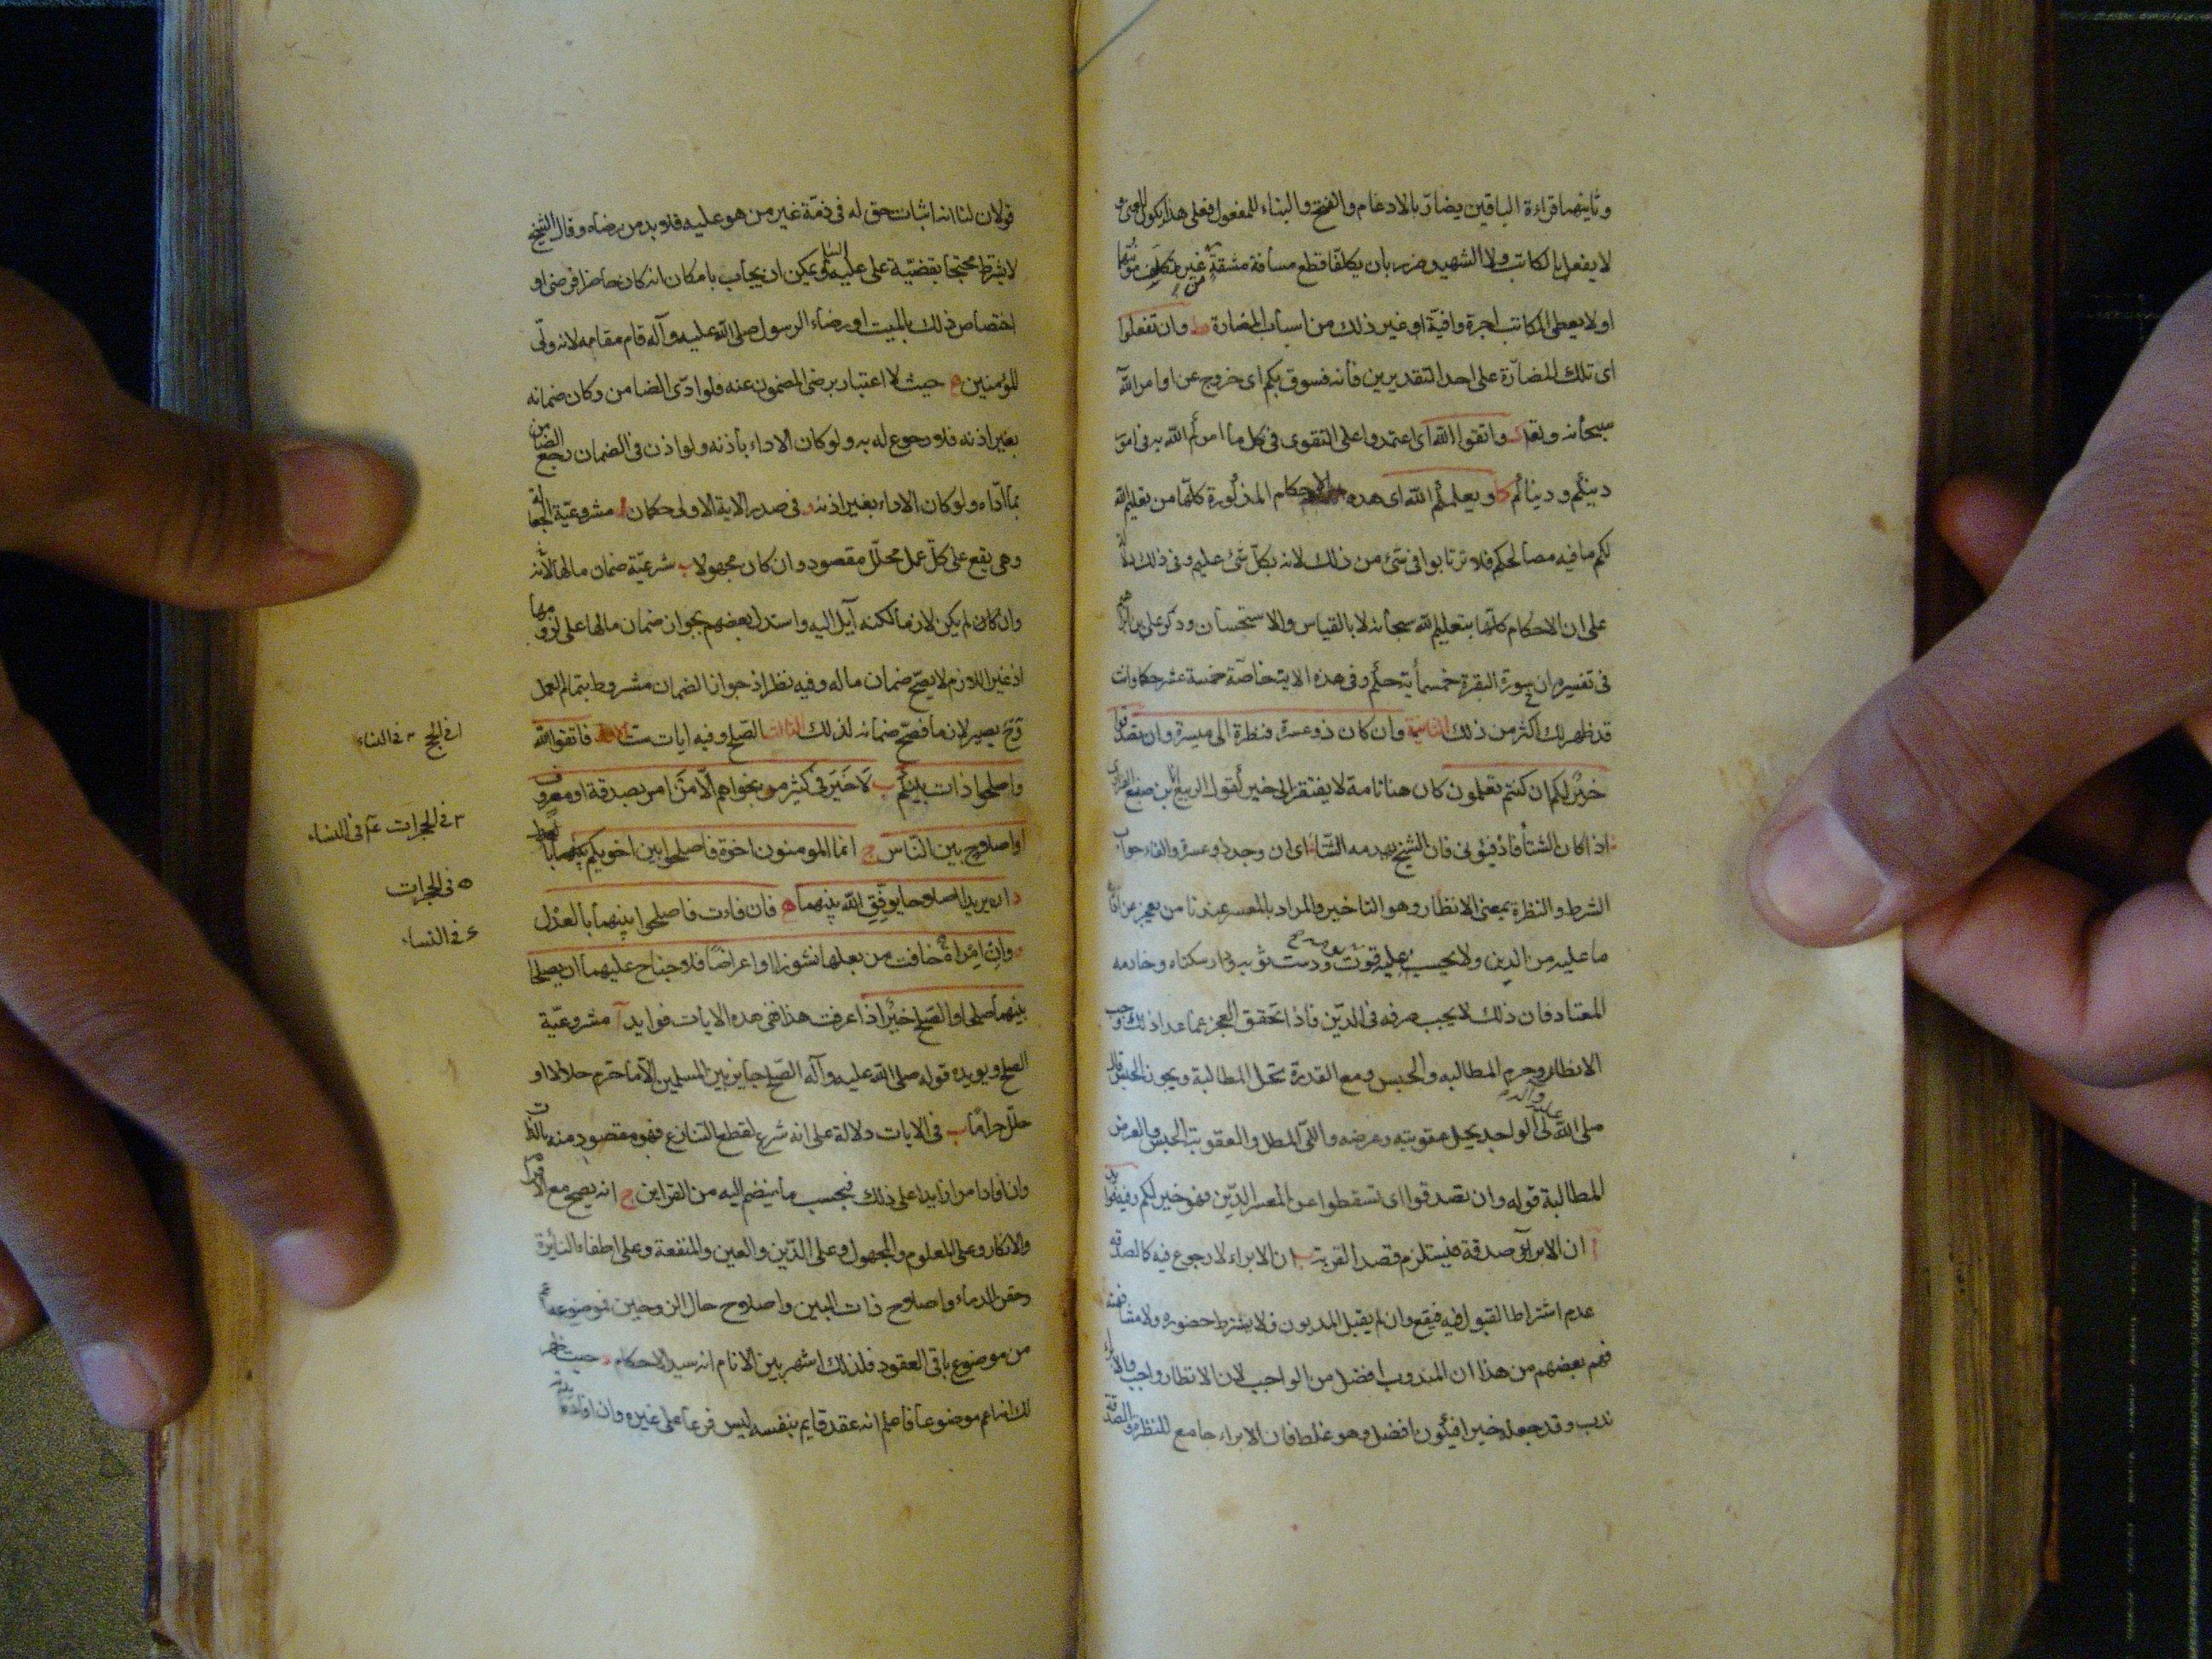 وثانيهما قراءة الباقين يضارّ بالادغام والفتح والبناء للمفعول فعلى هذا يكون المعنى
لا يفعل بالكاتب ولا الشهيد ضرر بان يكلفا قطع مسافة مشقة من غير تكلف مؤنتهما
او لا يعطى الكاتب اجرة وافية او غير ذلك من اسباب المضارة وان تفعلوا
اى تلك المضارّة على احد التقديرين فانه فسوق بكم اى خروج عن اوامر الله
سبحانه وتعالى واتقوا الله اى اعتمدوا على التقوى فى كل ما امركم الله به فى امور
دينكم ودنياكم كا ويعلمكم الله اى هذه الاحكام المذكورة كلها من تعليم الله
لكم ما فيه مصالحكم فلا ترتابوا فى شئ من ذلك لانه بكل شئ عليم وفى ذلك دلالة
على ان الاحكام كلها بتعليم الله سبحانه لا بالقياس والاستحسان وذكر على بن ابراهيم
فى تفسيره ان فى سورة البقرة خمسمأية حكم وفى هذه الاية خاصّة خمسة عشر حكما وانت
قد ظهر لك اكثر من ذلك الثانية وان كان ذو عسرة فنظرة الى ميسرة وان تصدقوا
خير لكم ان كنتم تعلمون كان هنا تامة لا يفتقر الى خبر كقول الربيع بن ضبيع الفزارى
اذا كان الشتأ فادفئونى فان الشيخ يهدمه الشتاء اى ان وجد ذو عسرة والفاء جواب
الشرط والنظرة بمعنى الانظار وهو التاخير والمراد بالمعسر عندنا من يعجز عن اداء
ما عليه من الدين ولا يحسب عليه قوت يومه ودست ثوب ودار سكناه وخادمه
المعتاد فان ذلك لا يجب صرفه فى الدّين فاذا تحقق العجز عما عدا ذلك وجب
الانظار وحرم المطالبه والحبس ومع القدرة تحل المطالبة ويجوز الحبس قال
صلى الله عليه وآله لىّ الواجد يحل عقوبته وعرضه واللىّ المطل والعقوبة الحبس والعرض
المطالبة قوله وان تصدقوا اى تسقطوا عن المعسر الدّين فهو خير لكم وفيه فوايد
آ ان الابراء صدقة فيستلزم قصد القربة ب ان الابراء لا رجوع فيه كالصدقه
عدم اشتراط القبول فيه فيقع وان لم يقبل المديون فلا يشترط حضوره ولا مشافهته
فهم بعضهم من هذا ان المندوب افضل من الواجب لان الانظار واجب والابراء
ندب وقد جعله خيرا فيكون افضل وهو غلط فان الابراء جامع للنظرة والصدقة
قولان لنا انه اثبات حق له فى ذمّة غير من هو عليه فلا بد من رضاه وقال الشيخ
لا يشترط محتجا بقضيّة على عليه السلم ويمكن ان يجاب بامكان انه كان حاضرا فرضى او
اختصاص ذلك بالميت او رضاء الرسول صلى الله عليه وآله قام مقامه لانه ولىّ
للمؤمنين ه حيث لا اعتبار برضى المضمون عنه فلو ادّى الضامن وكان ضمانه
بغير اذنه فلا رجوع له به ولو كان الاداء باذنه ولو اذن فى الضمان رجع الضامن
بما ادّاه ولو كان الاداء بغير اذنه و فى صدر الاية الاولى حكمان آ مشروعيّة الجعالة
وهى يقع على كلّ عمل محلّل مقصود وان كان مجهولا ب شرعيّة ضمان مالها لأنه
وان كان لم يكن لازما لكنه آيل اليه واستدل بعضهم بجواز ضمان مالها على لزومها
اذ غير اللازم لا يصحّ ضمان ماله وفيه نظر اذ جواز الضمان مشروط بتمام العمل
وح يصير لازما فصحّ ضمانه لذلك الثالث الصّلح وفيه ايات ست الاولى فاتقوا الله
واصلحوا ذات بينكم ب لا خير فى كثير من نجواهم الّا من امر بصدقة او معروف
او اصلاح بين النّاس ج انما المومنون اخوة فاصلحوا بين اخويكم
د ان يريدا اصلاحا يوفّق الله بينهما ه فان فاءت فاصلحوا بينهما بالعدل
و وان امراة خافت من بعلها نشوزا او اعراضا فلا جناح عليهما ان يصلحا
بينهما صلحا والصّلح خير اذا عرفت هذا ففى هذه الايات فوايد آ مشروعيّة
الصلح ويويده قوله صلى الله عليه وآله الصّلح جايز بين المسلمين الّا ما حرّم حلالا او
حلّل حراما ب فى الايات دلالة على انه شرع لقطع التنازع فهو مقصود منه بالذات
وان افاد امرا زايدا على ذلك فبحسب ما ينضم اليه من القراين ج انه يصح مع الاقرار
والانكار وعلى المعلوم والمجهول وعلى الدّين والعين والمنفعة وعلى اطفاء النايرة
وحقن الدماء واصلاح ذات البين واصلاح حال الزوجين فموضوعه اعم
من موضوع باقى العقود فلذلك اشهر بين الانام انه سيد الاحكام د حيث ظهر
لك انه اعم موضوعا فاعلم انه عقد قايم بنفسه ليس فرعا على غيره وان افاد فايدته
١ فى الحج ٢ فى النساء
٣ فى الحجرات ٤ فى النساء
٥ فى الحجرات
٦ فى النساء